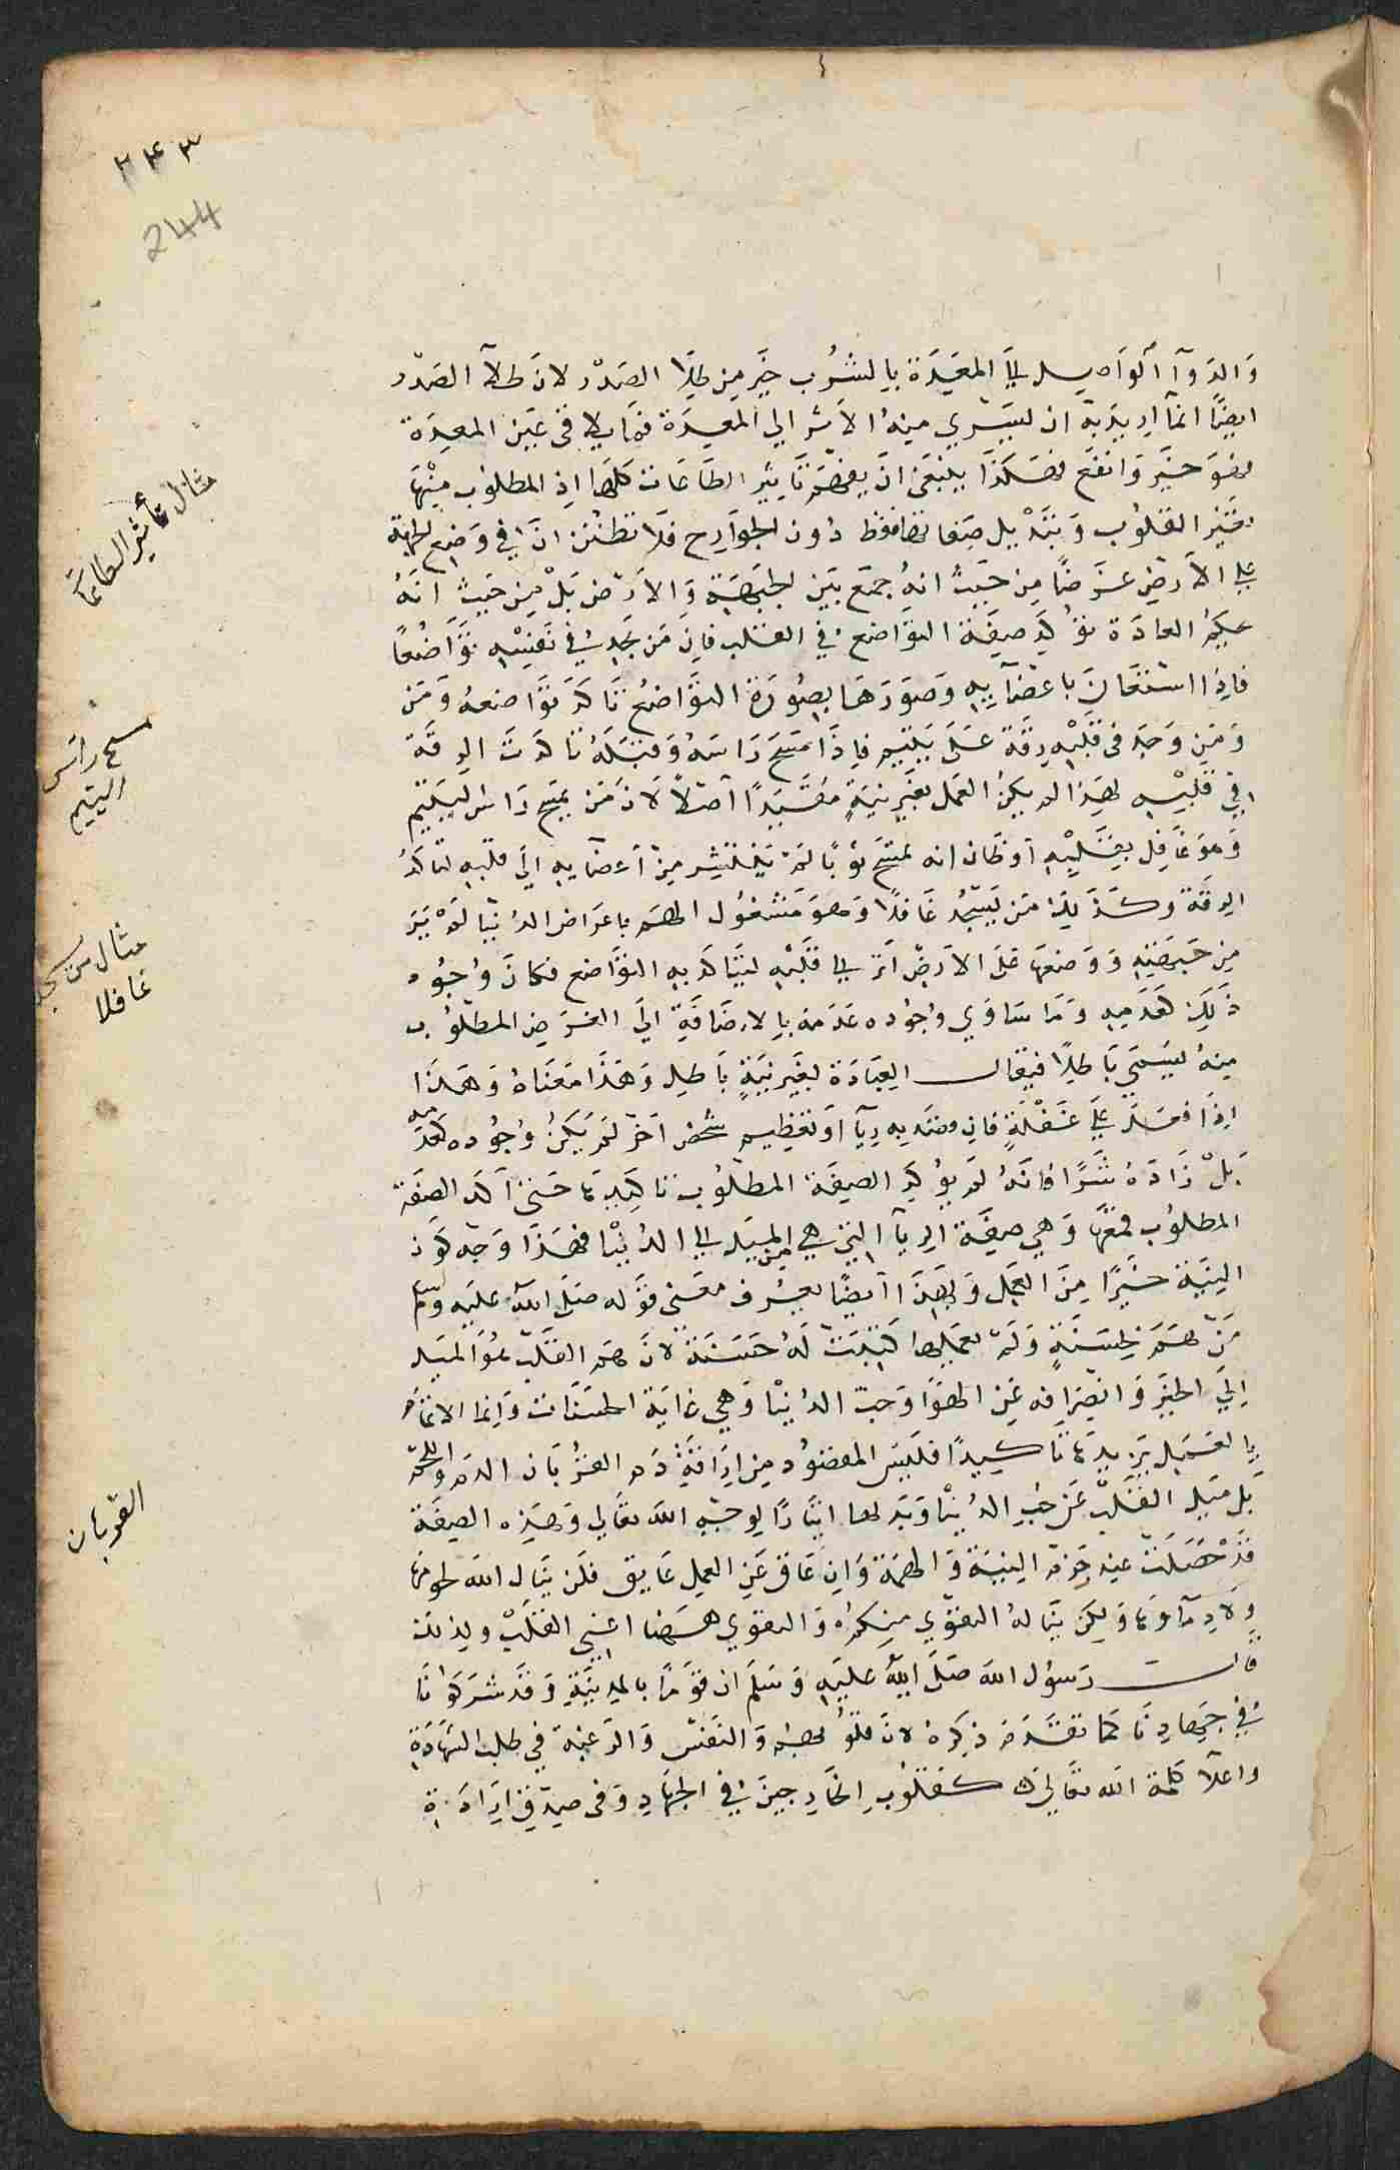 ٢٤٣
244
والدوآ الواصل الى المعدة بالشرب خير من طلا الصدر لان طلآ الصدر
ايضا انما اريد به ان يسري منه الاثر الى المعدة فما يلاقى عين المعدة
فهو خير وانفع فهكذا ينبغى ان يفهم تاثير الطاعات كلها اذ المطلوب منها
تغيير القلوب وتبديل صفاتها فقط دون الجوارح فلا تظنن ان في وضع الجبهة
على الارض غرضا من حيث انه جمع بين الجبهة والارض بل من حيث انه
بحكم العادة يؤكد صفة التواضع في القلب فان من يجد في نفسه تواضعا
فاذا استعان باعضآيه وصورها بصورة التواضع تاكد تواضعه ومن
ومن وجد فى قلبه رقة على يتيم فاذا مسح راسه وقبله تاكدت الرقة
في قلبه لهذا لم يكن العمل بغير نية مفيدا اصلا لان من يمسح راس ليتيم
وهو غافل بقلبه او ظان انه يمسح ثوبا لم ينتشر من اعضايه الى قلبه لتاكد
الرقة وكذلك من يسجد غافلا وهو مشغول الهم باعراض الدنيا لم ينتشر
من جبهته ووضعها على الارض اثر الى قلبه ليتاكد به التواضع فكان وجود
ذلك كعدمه وما ساوي وجوده عدمه بالاضافة الى الغرض المطلوب
منه ليسمى باطلا فيقال العبادة بغير نية باطل وهذا معناه وهذا
اذا فعل على غفلة فان قصد به ريآ او تعظيم شخص آخر لم يكن وجوده كعدمه
بل زاده شرا فانه لم يؤكد الصفة المطلوب تاكيدها حتى اكد الصفة
المطلوب قمعها وهي صفة الريآ التي هي من الميل الى الدنيا فهذا وجه كون
النية خيرا من العمل وبهذا ايضا يعرف معنى قوله صلى الله عليه وسلم
من هم بحسنة ولم يعملها كتبت له حسنة لان هم القلب هو الميل
الى الخير وانصرافه عن الهوا وحب الدنيا وهي غاية الحسنات وانما الاتمام
بالعمل يزيدها تاكيدا فليس المقصود من اراقة دم القربان الدم واللحم
بل ميل القلب عن حب الدنيا وبذلها ايثارا لوجه الله تعالى وهذه الصفة
قد حصلت عند جزم النية والهمة وان عاق عن العمل عايق فلن ينال الله لحومها
ولا دماوها ولكن يناله التقوي منكم والتقوي ههنا اعني القلب ولذلك
قال رسول الله صلى الله عليه وسلم ان قوما بالمدينة وقد شركوانا
في جهادنا كما تقدم ذكره لان قلوبهم والنفس والرغبة في طلب الشهادة
واعلآ كلمة الله تعالى كقلوب الخارجين في الجهاد وفى صدق ارادة
مثال تأثير الطاعات
مسح رأس
اليتيم
مثال من سجد
غافلا
القربان